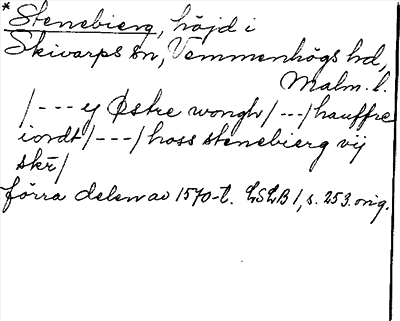 * Stenebierg, höjd i
Skivarps sn, Vemmenhögs hd,
Malm. l.
/--- y Østre wongh/---/hauffre
iordt/---/hoss stenebierg vij
skr̄/
förra delen av 1570-t. LSLB 1, s. 253. orig.